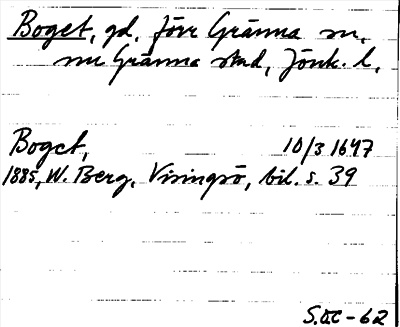 Boget, gd, förr Gränna sn,
nu Gränna stad, Jönk. l,
Boget, 10/3 1647
1885, W. Berg, Visingsö, bil. s. 39
S.O.C-62